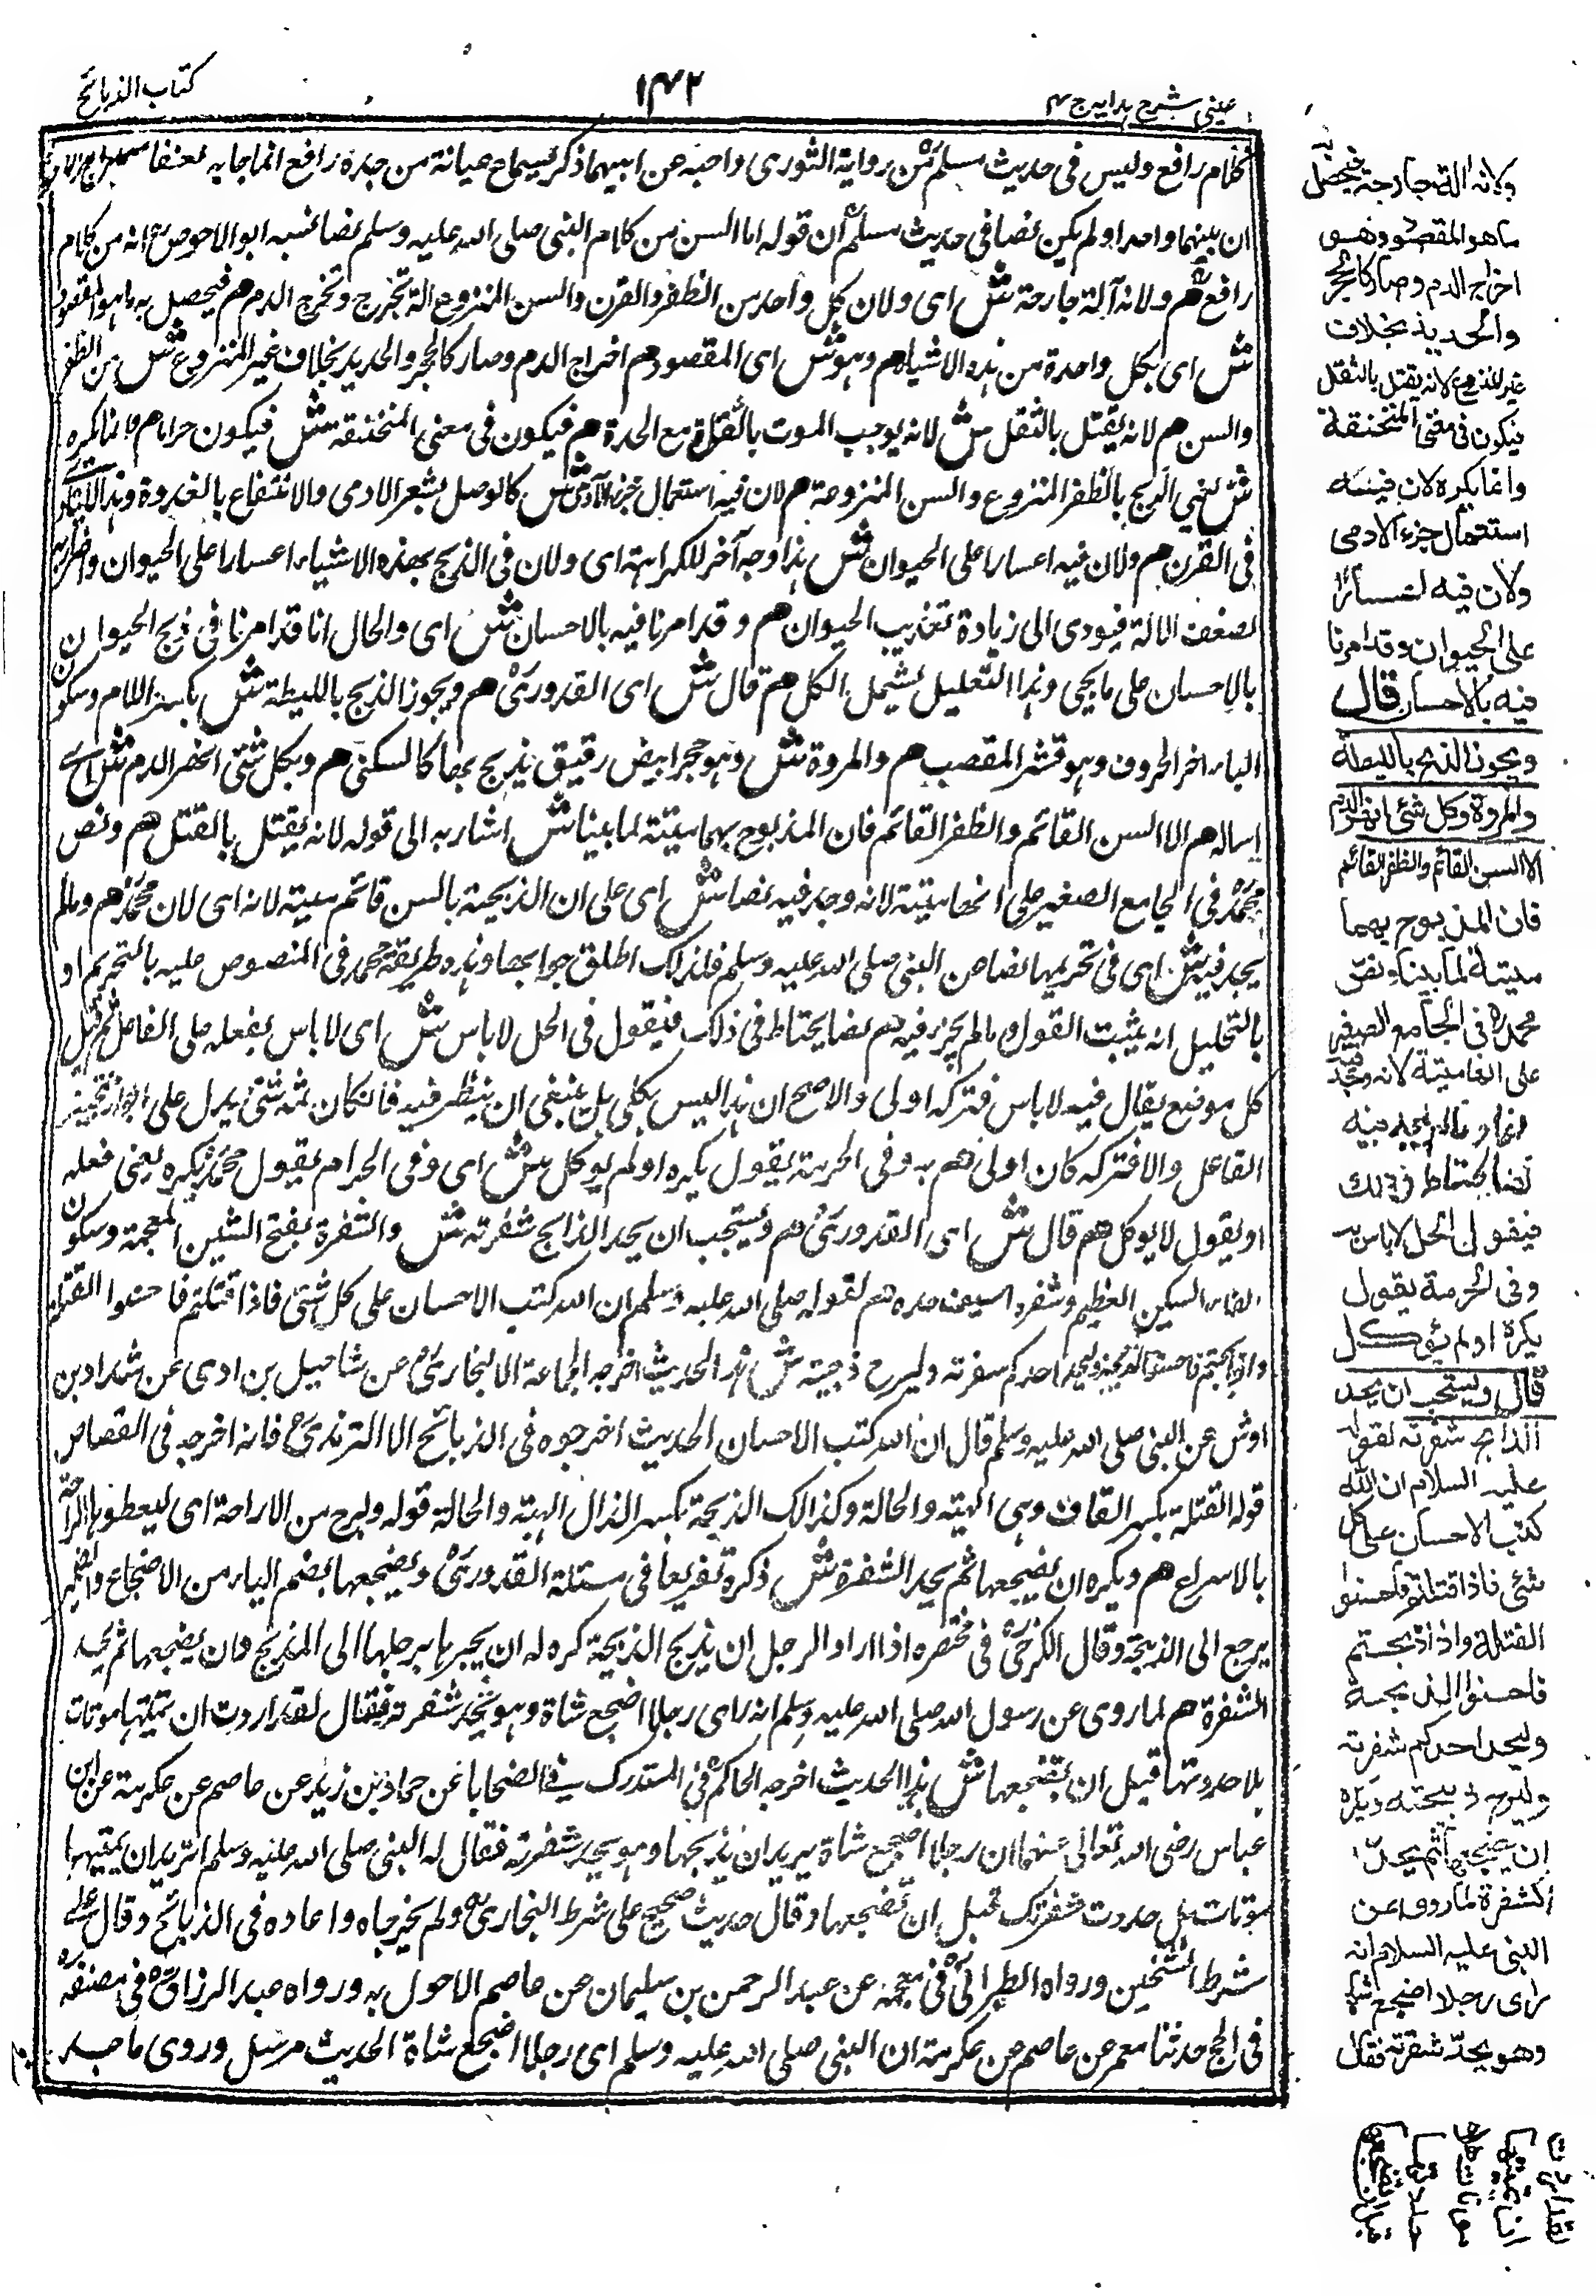 عینی شرح ہدایہ ج ۴
۱۴۲
کتاب الذبائح
کلام رافع ولیس فی حدیث مسلم من روایة الثوری واخبه عن ابیهما ذکر لسماع عبایة من جده رافع انما جابه
ان بینهما واحدا ولم یکن نصا فی حدیث مسلم ان قوله اما السن من کلام النبی صلی الله علیه وسلم نصا فنسبه ابو الاحوص انه من کلام
رافع هم ولانه آلة جارحة ش ای ولان کل واحد من الظفر والقرن والسن المنزوع آلة تجرح وتخرج الدم هم فیحصل به ما هو المقصود
ش ای بکل واحدة من هذه الاشیاء هم وهو ش ای المقصود هم اخراج الدم وصار کالحجر والحدید بخلاف غیر المنزوع ش من الظفر
والسن هم لانه یقتل بالثقل ش لانه یوجب الموت بالثقل مع الحدة هم فیکون فی معنی المنخنقة ش فیکون حراما هم وانما یکره
ش یعنی الذبح بالظفر المنزوع والسن المنزوعة هم لان فیه استعمال جزء الآدمی ش کالوصل بشعر الادمی والانتفاع بالغدوة
فی القرن هم ولان فیه اعسارا علی الحیوان ش هذا وجه آخر للکراهة ای ولان فی الذبح بهذه الاشیاء اعسارا علی الحیوان
لضعف الالة فیودی الی زیادة تعذیب الحیوان هم وقد امرنا فیه بالاحسان ش ای والحال انا قد امرنا فی ذبح الحیوان
بالاحسان علی ما یجئ وهذا التعلیل یشمل الکل هم قال ش ای القدوری هم ویجوز الذبح باللیطة ش بکسر اللام وسکون
الیاء اخر الحروف وهو قشر القصب هم والمروة ش وهو حجر ابیض رقیق یذبح بها کالسکین هم وبکل شئ انهر الدم ش ای
اساله هم الا السن القائم والظفر القائم فان المذبوح بهما میتة لما بینا ش اشار به الی قوله لانه یقتل بالثقل هم ونص
محمد فی الجامع الصغیر علی انها میتة لانه وجد فیه نصا ش ای علی ان الذبیحة بالسن قائم میتة لانه ای لان محمد هم وما لم
یجد فیه ش ای فی تحریمها نصا عن النبی صلی الله علیه وسلم فلذلک اطلق جوابها وهذه طریقة محمد فی المنصوص علیه بالتحریم او
بالتحلیل انه یثبت القول وما لم یجز فیه هم نصا یحتاط فی ذلک فیقول فی الحل لا باس ش ای لا باس بفعله علی الفاعل ثم قیل
کل موضع یقال فیه لا باس فترکه اولی والاصح ان هذا لیس بکلی بل ینبغی ان ینظر فیه فان کان ثمه شئ یدل علی
الفاعل والا فترکه کان اولی هم به وفی الحرمة یقول یکره او لم یوکل ش ای وفی الحرام یقول محمد یکره یعنی فعله
او یقول لا یوکل هم قال ش ای القدوری هم ویستحب ان یحد الذابح شفرته ش والشفرة بفتح الشین المعجمة وسکون
الفاء السکین العظیم وشفرة السیف حده هم لقوله صلی الله علیه وسلم ان الله کتب الاحسان علی کل شئ فاذا قتلتم فاحسنوا القتلة
واذا ذبحتم فاحسنوا الذبیحة ولیحد احدکم شفرته ولیرح ذبیحته ش هذا الحدیث اخرجه الجماعة الا البخاری عن شراحیل بن ادی عن شداد بن
اوس عن النبی صلی الله علیه وسلم قال ان الله کتب الاحسان الحدیث اخرجوه فی الذبائح الا الترمذی فانه اخرجه فی القصاص
قوله القتلة بکسر القاف وهی الهیئة والحالة وکذلک الذبیحة بکسر الذال الهیئة والحالة قوله ولیرح من الاراحة ای لیعطوها الراحة
بالاسراع هم ویکره ان یضجعها ثم یحد الشفرة ش ذکره تفریعا فی مسئلة القدوری ویضجعها بضم الیاء من الاضجاع والضمیر
یرجع الی الذبیحة وقال الکرخی فی مختصره اذا اراد الرجل ان یذبح الذبیحة کره له ان یجرها برجلها الی المذبح وان یضجعها ثم یحد
الشفرة هم لما روی عن رسول الله صلی الله علیه وسلم انه رای رجلا اضجع شاة وهو یحد شفرته فقال لقد اردت ان تمیتها موتات
هلا حددتها قبل ان تضجعها ش هذا الحدیث اخرجه الحاکم فی المستدرک فی الضحایا عن حماد بن زید عن عاصم عن عکرمة عن ابن
عباس رضی الله تعالی عنهما ان رجلا اضجع شاة یرید ان یذبحها وهو یحد شفرته فقال له النبی صلی الله علیه وسلم اترید ان تمیتها
موتات هل حددت شفرتک قبل ان تضجعها وقال حدیث صحیح علی شرط البخاری ولم یخرجاه واعاده فی الذبائح وقال علی
شرط الشیخین ورواه الطبرانی فی معجمه عن عبد الرحمن بن سلیمان عن عاصم الاحول به ورواه عبد الرزاق فی مصنفه
فی الحج حدثنا معمر عن عاصم عن عکرمة ان النبی صلی الله علیه وسلم ای رجلا اضجع شاة الحدیث مرسل وروی ماجد
ولانه الة جارحة فیحصل
ما هو المقصود وهو
اخراج الدم وصار کالحجر
والحدید بخلاف
غیر المنزوع لانه یقتل بالثقل
فیکون فی معنی المنخنقة
وانما یکره لان فیه
استعمال جزء الادمی
ولان فیه اعسارا
علی الحیوان وقد امرنا
فیه بالاحسان قال
ویجوز الذبح باللیطة
والمروة وکل شئ انهر الدم
الا السن القائم والظفر القائم
فان المذبوح بهما
میتة لما بینا ونص
محمد ره فی الجامع الصغیر
علی انها میتة لانه وجد
نصا وما لم یجد فیه
نصا یحتاط فی ذلک
فیقول فی الحل لا باس به
وفی الحرمة یقول
یکره او لم یؤکل
قال ویستحب ان یحد
الذابح شفرته لقوله
علیه السلام ان الله
کتب الاحسان علی کل
شئ فاذا قتلتم فاحسنوا
القتلة واذا ذبحتم
فاحسنوا الذبحة
ولیحد احدکم شفرته
ولیرح ذبیحته ویکره
ان یضجعها ثم یحد
الشفرة لما روی عن
النبی علیه السلام انه
رای رجلا اضجع شاة
وهو یحد شفرته فقال
لقد اردت
ان تمیتها
موتات هلا
حددتها
قبل ان تضجعها